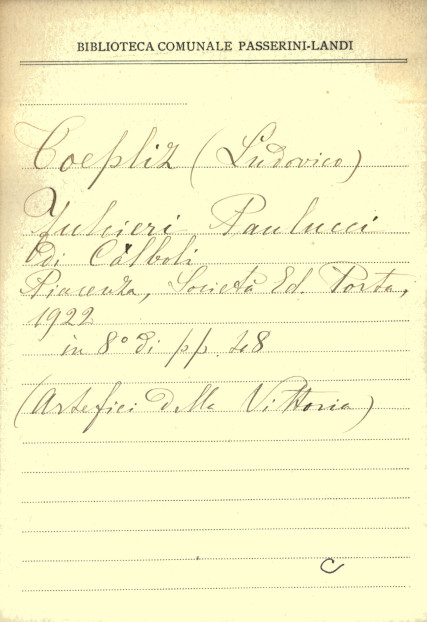 BIBLIOTECA COMUNALE PASSERINI-LANDI
Toeplitz (Ludovico)
Fulcieri Paulucci
di Calboli
Piacenza, Società Ed. Porta,
1922
in 8° di pp. 48
(Artefici della Vittoria)
C